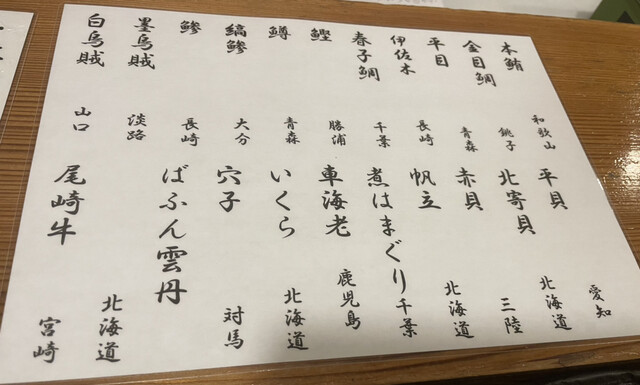 本鮪 和歌山
金目鯛 銚子
平目 青森
伊佐木 長崎
春子鯛 千葉
鰹 勝浦
鱒 青森
縞鯵 大分
鯵 長崎
墨烏賊 淡路
白烏賊 山口
平貝 愛知
北寄貝 北海道
赤貝 三陸
帆立 北海道
煮はまぐり 千葉
車海老 鹿児島
いくら 北海道
穴子 対馬
ばふん雲丹 北海道
尾崎牛 宮崎